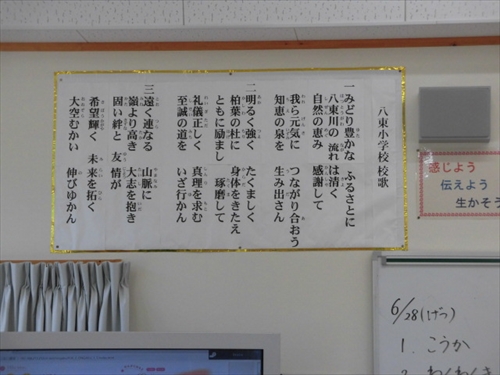 八東小学校 校歌
一 みどり豊かな ふるさとに
八東川の 流れは清く
自然の恵み 感謝して
我ら元気に つながり合おう
知恵の泉を 生み出さん
二 明るく強く たくましく
柏葉の杜に 身体をきたえ
ともに励まし 琢磨して
礼儀正しく 真理を求む
至誠の道を いざ行かん
三 遠く連なる 山脈に
嶺より高き 大志を抱き
固い絆と 友情が
希望輝く 未来を拓く
大空むかい 伸びゆかん
感じよう
伝えよう
生かそう
6/28(げつ)
1. こうか